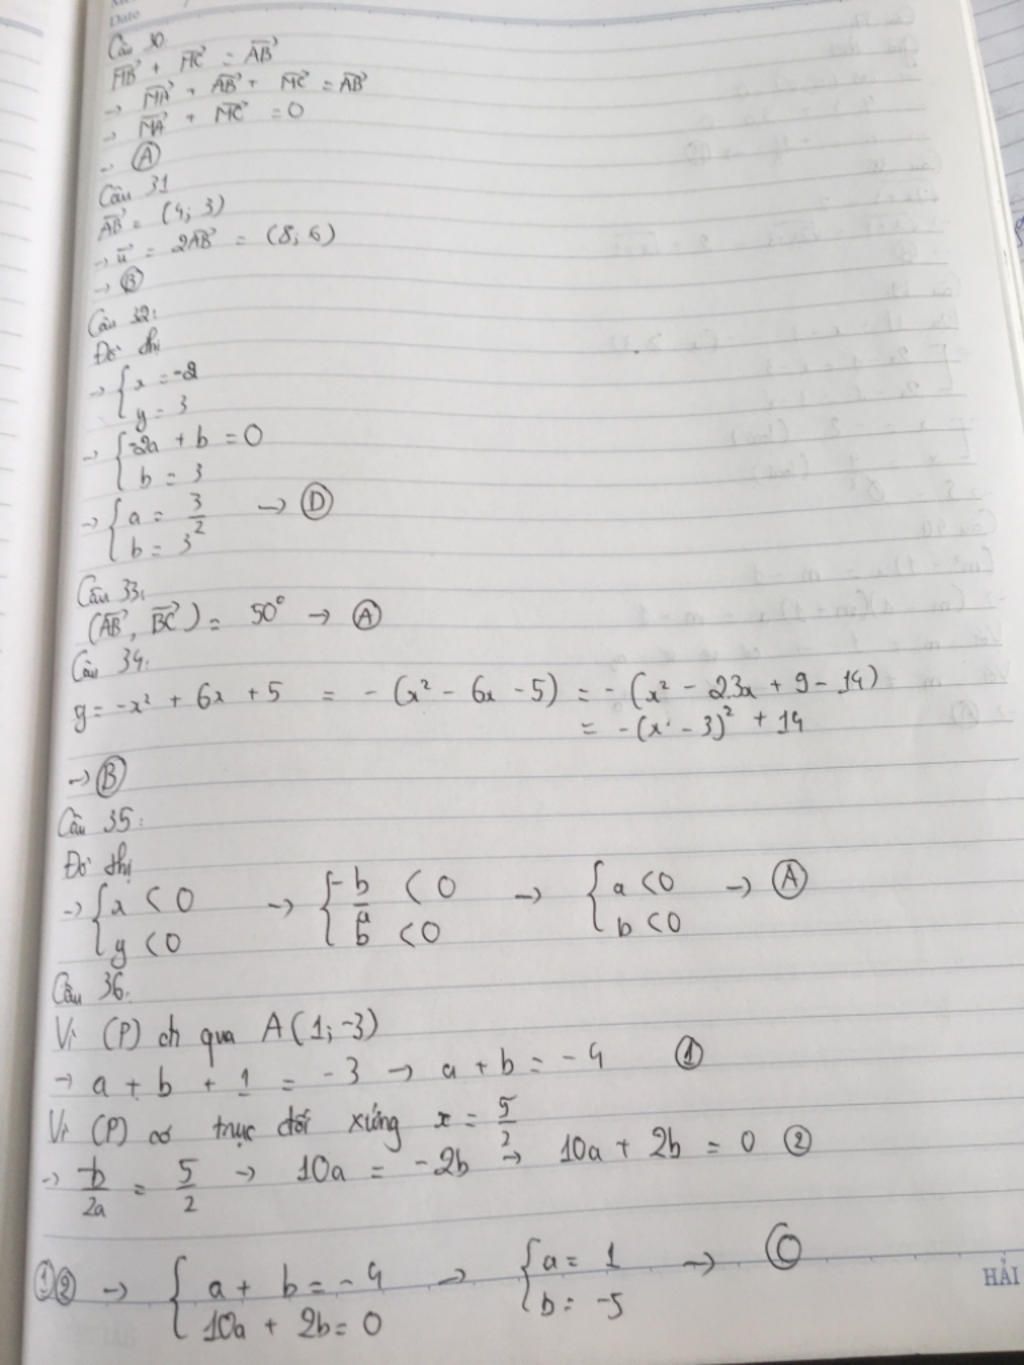 Date
Câu 30
MB→ + MC→ = AB→
→ MA→ + AB→ + MC→ = AB→
→ MA→ + MC→ = 0
→ Ⓐ
Câu 31
AB→ = (4; 3)
→ u→ = 2AB→ = (8; 6)
→ Ⓑ
Câu 32:
Đồ thị
→ { x = -2
y = 3
→ { -2a + b = 0
b = 3
→ { a = 3/2 → Ⓓ
b = 3
Câu 33:
(AB→, BC→) = 50° → Ⓐ
Câu 34:
y = -x² + 6x + 5 = -(x² - 6x - 5) = -(x² - 2.3x + 9 - 14)
= -(x - 3)² + 14
→ Ⓑ
Câu 35:
Đồ thị
→ { x < 0 → { -b/a < 0 → { a < 0 → Ⓐ
y < 0 b < 0 b < 0
Câu 36:
Vì (P) đi qua A(1; -3)
→ a + b + 1 = -3 → a + b = -4 ①
Vì (P) có trục đối xứng x = 5/2
→ -b/2a = 5/2 → 10a = -2b → 10a + 2b = 0 ②
①② → { a + b = -4 → { a = 1 → Ⓒ
10a + 2b = 0 b = -5
HẢI